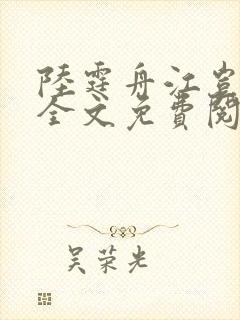 陸霆舟江
全文免費閱
吴荣光